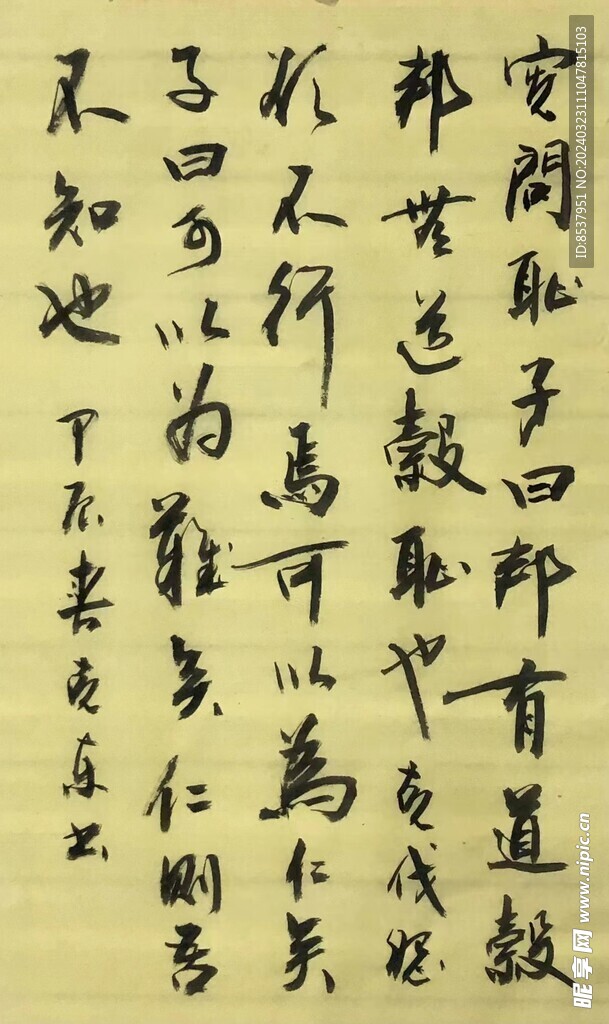 宪問恥子曰邦有道穀
邦無道穀恥也克伐怨
欲不行焉可以為仁矣
子曰可以为難矣仁則吾
不知也
甲辰春克东书
ID:8537951 NO:20240323111047815103
昵享网 www.nipic.cn